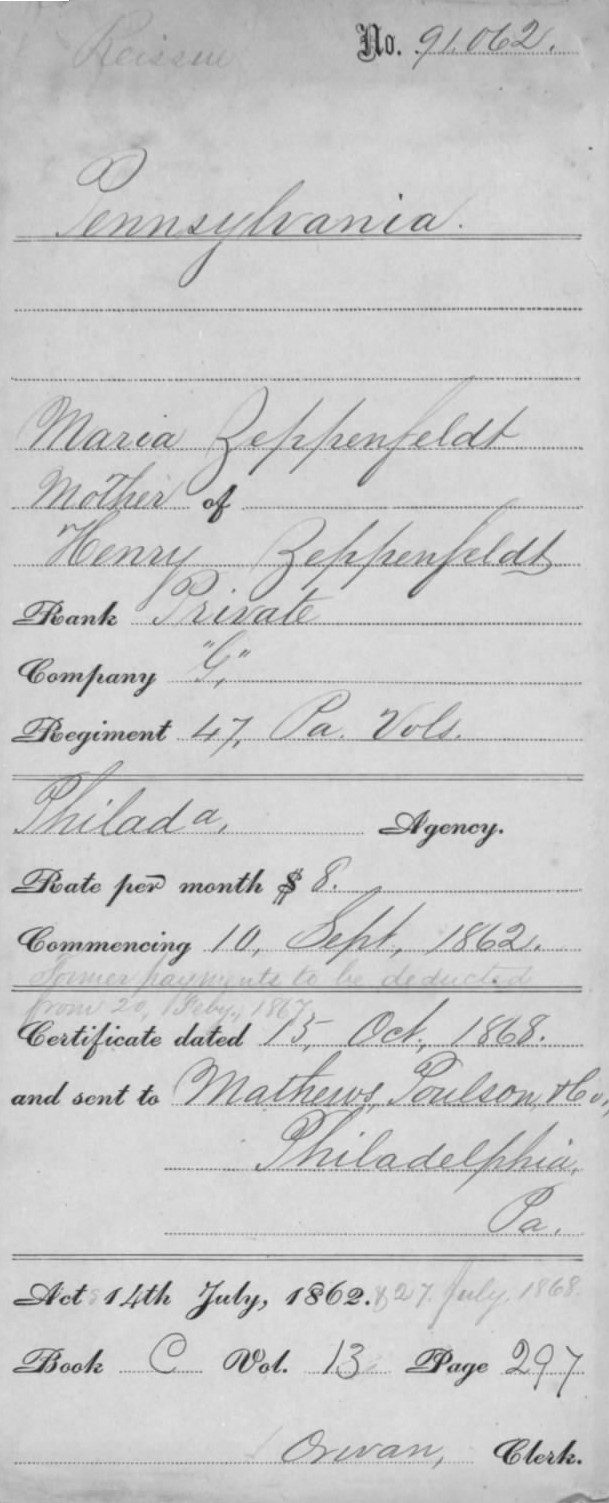 Reissue
No. 91.062.
Pennsylvania.
Maria Zeppenfeldt
Mother of
Henry Zeppenfeldt
Rank Private
Company "G,"
Regiment 47, Pa. Vols.
Philada, Agency.
Rate per month $ 8.
Commencing 10, Sept, 1862.
Former payments to be deducted
from 20, Feby., 1867
Certificate dated 15, Oct, 1868.
and sent to Mathews, Poulson, & Co,
Philadelphia,
Pa.
Acts 14th July, 1862. & 27. July 1868.
Book C Vol. 13 Page 297
Clerk.